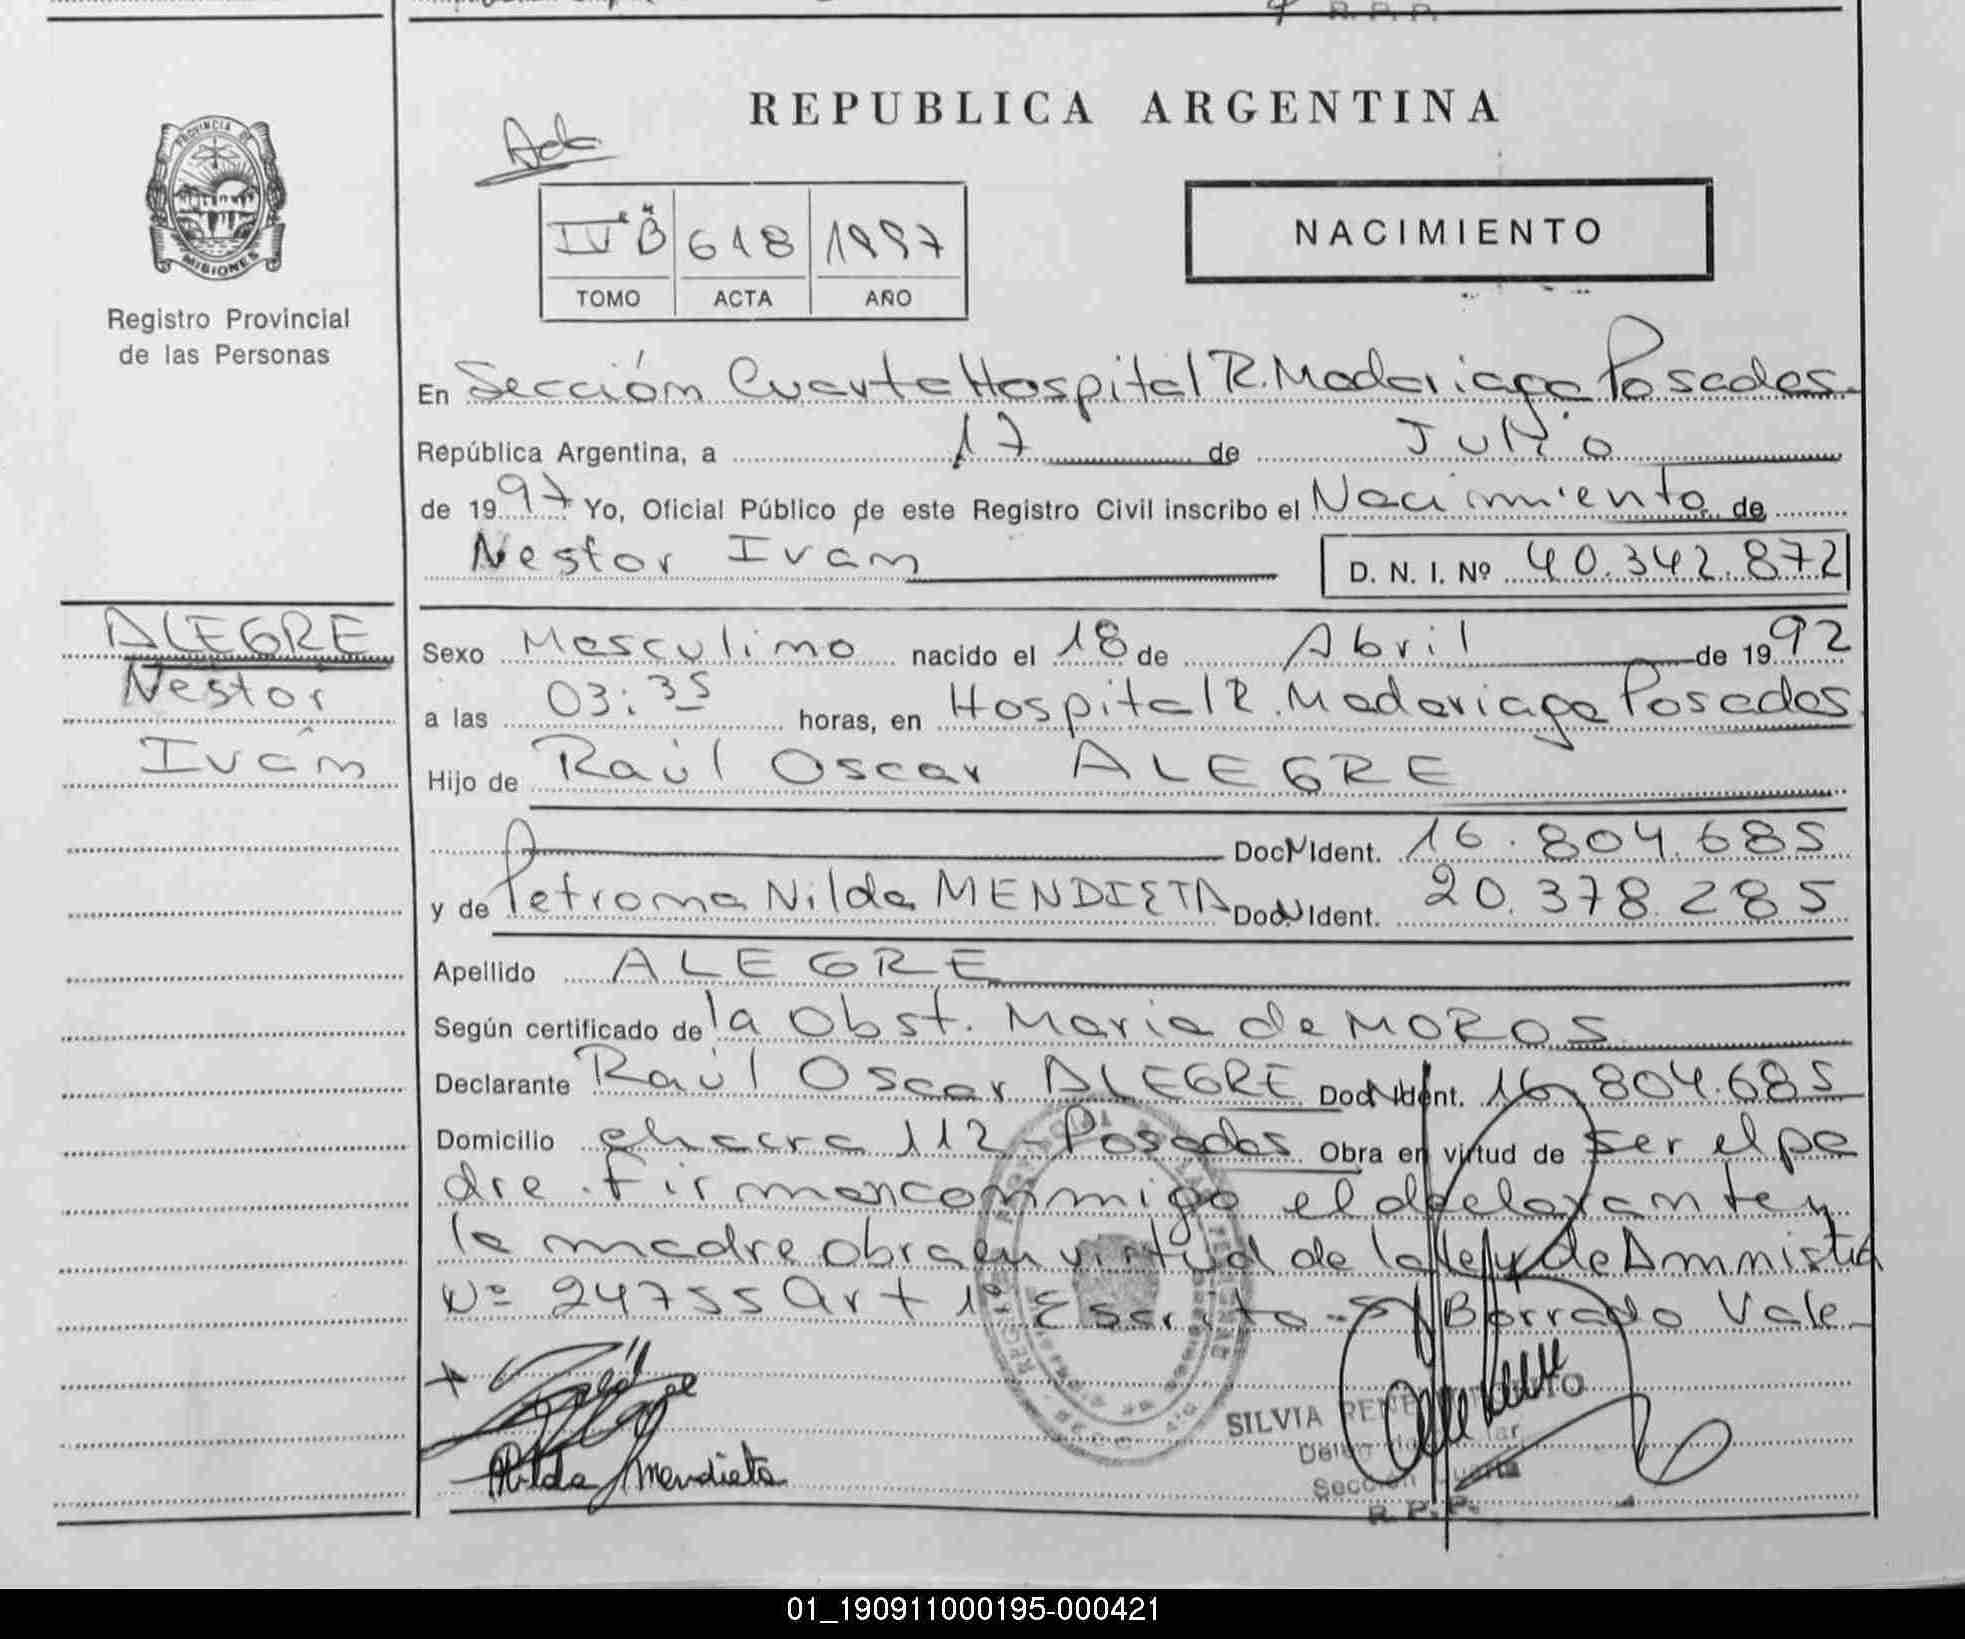 R. P. P.
REPUBLICA ARGENTINA
PROVINCIA DE
MISIONES
Registro Provincial
de las Personas
IV "B" 618 1997
TOMO ACTA AÑO
NACIMIENTO
En Sección Cuarta Hospital R. Madariaga Posadas.
República Argentina, a 17 de Julio
de 1997 Yo, Oficial Público de este Registro Civil inscribo el Nacimiento de
Nestor Iván D. N. I. Nº 40.342.872
ALEGRE
Nestor
Iván
Sexo Masculino nacido el 18 de Abril de 1992
a las 03:35 horas, en Hospital R. Madariaga Posadas.
Hijo de Raúl Oscar ALEGRE
Doc N Ident. 16.804.685
y de Petrona Nilda MENDIETA Doc. N Ident. 20.378.285
Apellido ALEGRE
Según certificado de la Obst. Maria de MOROS
Declarante Raúl Oscar ALEGRE Doc N Ident. 16.804.685
Domicilio chacra 112 - Posadas Obra en virtud de ser el pa
dre. Firman conmigo el declarante y
la madre obra en virtud de la ley de Amnistia
Nº 24755 Art 1º Escrito - S/ Borrado Vale_
Nilda Mendieta
SILVIA RENE
Sección Cuarta
R. P. P.
01_190911000195-000421